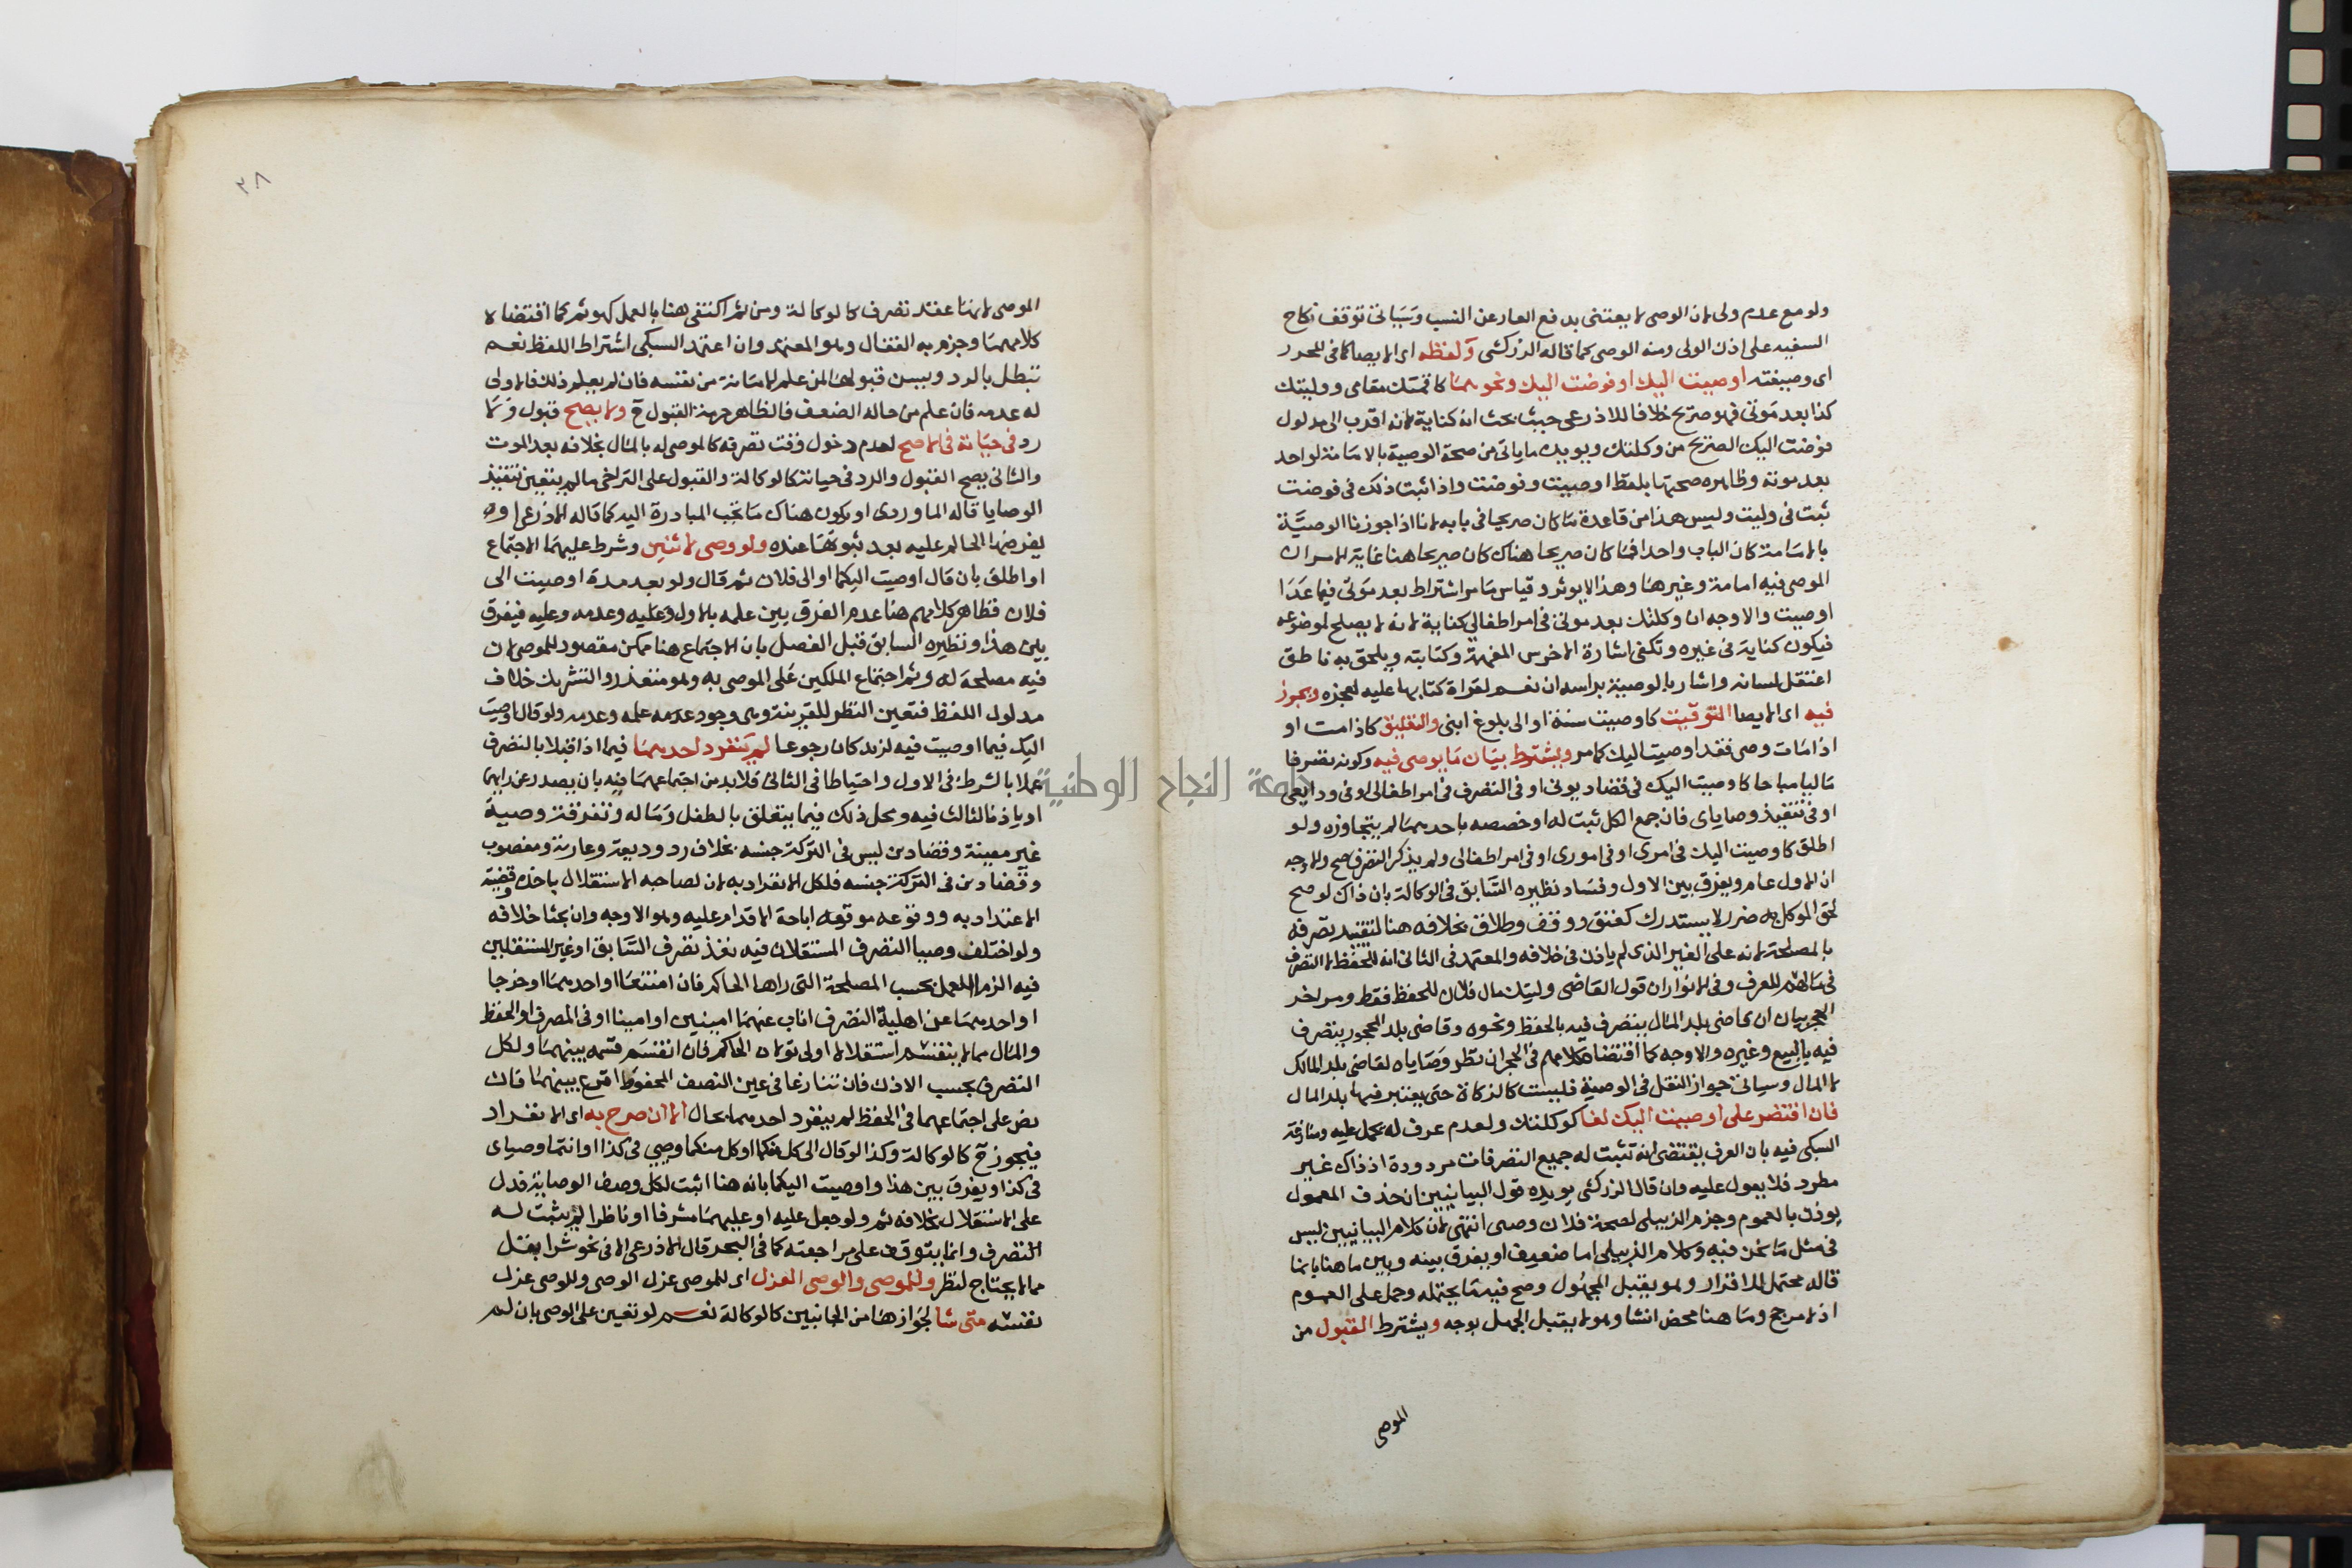 ولو مع عدم ولى لان الوصى لا يعتنى بدفع العار عن النسب وسياتى توقف نكاح
السفيه على اذن الولى ومنه الوصى كما قاله الزركشى ولفظه اى الايصا كما فى المحرر
اى وصيغته اوصيت اليك او فوضت اليك ونحوهما كاقمتك مقامى ووليتك
كذا بعد موتى فهو صريح خلافا للاذرعى حيث بحث انه كناية لانه اقرب الى مدلول
فوضت اليك الصريح من وكلتك ويويده ماياتى من صحة الوصية بالامامة لواحد
بعد موته وظاهره صحتها بلفظ اوصيت وفوضت واذا ثبت ذلك فى فوضت
ثبت فى وليت وليس هذا من قاعدة ما كان صريحا فى بابه لانا اذا جوزنا الوصية
بالامامة كان الباب واحدا فما كان صريحا هناك كان صريحا هنا غاية الامر ان
الموصى فيه امامة وغيرها وهذا لا يوثر وقياس مامر اشتراط بعد موتى فيما عدا
اوصيت والاوجه ان وكلتك بعد موتى فى امر اطفالى كناية لانه لا يصلح لموضوعه
فيكون كناية فى غيره وتكفى اشارة الاخرس المفهمة وكتابته ويلحق به ناطق
اعتقل لسانه واشار بالوصية براسه ان نعم لقراة كتابها عليه لعجزه ويجوز
فيه اى الايصا التوقيت كاوصيت سنة او الى بلوغ ابنى والتعليق كاذا مت او
اذا مات وصى فقد اوصيت اليك كمامر ويشترط بيان ما يوصى فيه وكونه تصرفا
ماليا مباحا كاوصيت اليك فى قضا ديونى او فى التصرف فى امر اطفالى او فى ودايعى
او فى تنفيذ وصاياى فان جمع الكل ثبت له او خصصه باحدهما لم يتجاوزه ولو
اطلق كاوصيت اليك فى امرى او فى امورى او فى امر اطفالى ولم يذكر التصرف صح والاوجه
ان الاول عام ويفرق بين الاول وفساد نظيره السابق فى الوكالة بان ذاك لو صح
لحق الموكل به ضرر لا يستدرك كعتق ووقف وطلاق بخلافه هنا لتقييد تصرفه
بالمصلحة لانه على الغير الذى لم ياذن فى خلافه والمعتمد فى الثانى انه للحفظ لا التصرف
فى مالهم للعرف وفى الانوار ان قول القاضى وليتك مال فلان للحفظ فقط ومر اخر
الحجر بيان ان قاضى بلد المال يتصرف فيه بالحفظ ونحوه وقاضى بلد المحجور يتصرف
فيه بالبيع وغيره والاوجه كما اقتضاه كلامهم فى الحجر ان نظر وصاياه لقاضى بلد المالك
لا المال وسياتى جواز النقل فى الوصية فليست كالزكاة حتى يعتبر فيها بلد المال
فان اقتصر على اوصيت اليك لغا كوكلتك ولعدم عرف له يحمل عليه ومنازعة
السبكى فيه بان العرف يقتضى انه تثبت له جميع التصرفات مردودة اذ ذاك غير
مطرد فلا يعول عليه وان قال الزركشى يويده قول البيانيين ان حذف المعمول
يوذن بالعموم وجزم الزبيلى لصحة فلان وصى انتهى لان كلام البيانيين ليس
فى مثل ما نحن فيه وكلام الزبيلى اما ضعيف او يفرق بينه وبين ما هنا بان ما
قاله محتمل للاقرار وهو يقبل المجهول وصح فيه ما يحتمله وحمل على العموم
اذ لا مرجح وما هنا محض انشا وهو لا يقبل الجهل بوجه ويشترط القبول من
الموصى
٣٨
الموصى لانها عقد تصرف كالوكالة ومن ثم اكتفى هنا بالعمل كهو ثم كما اقتضاه
كلامهما وجزم به القفال وهو المعتمد وان اعتمد السبكى اشتراط اللفظ نعم
تبطل بالرد ويسن قبولها لمن علم الامانة من نفسه فان لم يعلم ذلك فالاولى
له عدمه فان علم من حاله الضعف فالظاهر حرمة القبول ح ولا يصح قبول ولا
رد فى حياته فى الاصح لعدم دخول وقت تصرفه كالموصى له بالمال بخلافه بعد الموت
والثانى يصح القبول والرد فى حياته كالوكالة والقبول على التراخى مالم يتعين تنفيذ
الوصايا قاله الماوردى او يكون هناك ما تجب المبادرة اليه كما قاله الاذرعى او
يعرضها الحاكم عليه بعد ثبوتها عنده ولو وصى لاثنين وشرط عليهما الاجتماع
او اطلق بان قال اوصيت اليكما او الى فلان ثم قال ولو بعد مدة اوصيت الى
فلان فظاهر كلامهم هنا عدم الفرق بين علمه بالاول وعدمه وعليه فيفرق
بين هذا ونظيره السابق قبل الفصل بان الاجتماع هنا ممكن مقصود للموصى لان
فيه مصلحة له وثم اجتماع الملكين على الموصى به وهو متعذر والتشريك خلاف
مدلول اللفظ فتعين النظر للقرينة وهى وجود علمه وعدمه ولو قال اوصيت
اليك فيما اوصيت فيه لزيد كان رجوعا لم ينفرد احدهما فيما اذا قبلا بالتصرف
عملا بالشرط فى الاول واحتياطا فى الثانى فلابد من اجتماعهما فيه بان يصدر عن رايهما
او ياذنا لثالث فيه ومحل ذلك فيما يتعلق بالطفل وماله وتفرقة وصية
غير معينة وقضا دين ليس فى التركة جنسه بخلاف رد وديعة وعارية ومغصوب
وقضا دين فى التركة جنسه فلكل الانفراد به لان لصاحبه الاستقلال باخذه وقضية
الاعتداد به ووقوعه موقعه اباحة الاقدام عليه وهو الاوجه وان بحثا خلافه
ولو اختلف وصيا التصرف المستقلان فيه نفذ تصرف السابق او غير المستقلين
فيه الزما العمل بحسب المصلحة التى راها الحاكم فان امتنعا او احدهما او خرجا
او احدهما عن اهلية التصرف اناب عنهما امينين او امينا او فى المصرف او الحفظ
والمال مما لا ينقسم استقلالا اولى تولاه الحاكم فان انقسم قسمه بينهما ولكل
التصرف بحسب الاذن فان تنازعا فى عين النصف المحفوظ اقرع بينهما فان
نص على اجتماعهما فى الحفظ لم ينفرد احدهما بحال الا ان صرح به اى الانفراد
فيجوز ح كالوكالة وكذا لو قال الى كل منكما او كل منكما وصيى فى كذا او انتما وصياى
فى كذا ويفرق بين هذا واوصيت اليكما بانه هنا اثبت لكل وصف الوصاية فدل
على الاستقلال بخلافه ثم ولو جعل عليه او عليهما مشرفا او ناظرا لم يثبت له
التصرف وانما يتوقف على مراجعته كما فى البحر قال الاذرعى الا فى نحو شرا بقل
مما لا يحتاج لنظر وللموصى والوصى العزل اى للموصى عزل الوصى وللوصى عزل
نفسه متى شا لجوازها من الجانبين كالوكالة نعم لو تعين على الوصى بان لم
جامعة النجاح الوطنية